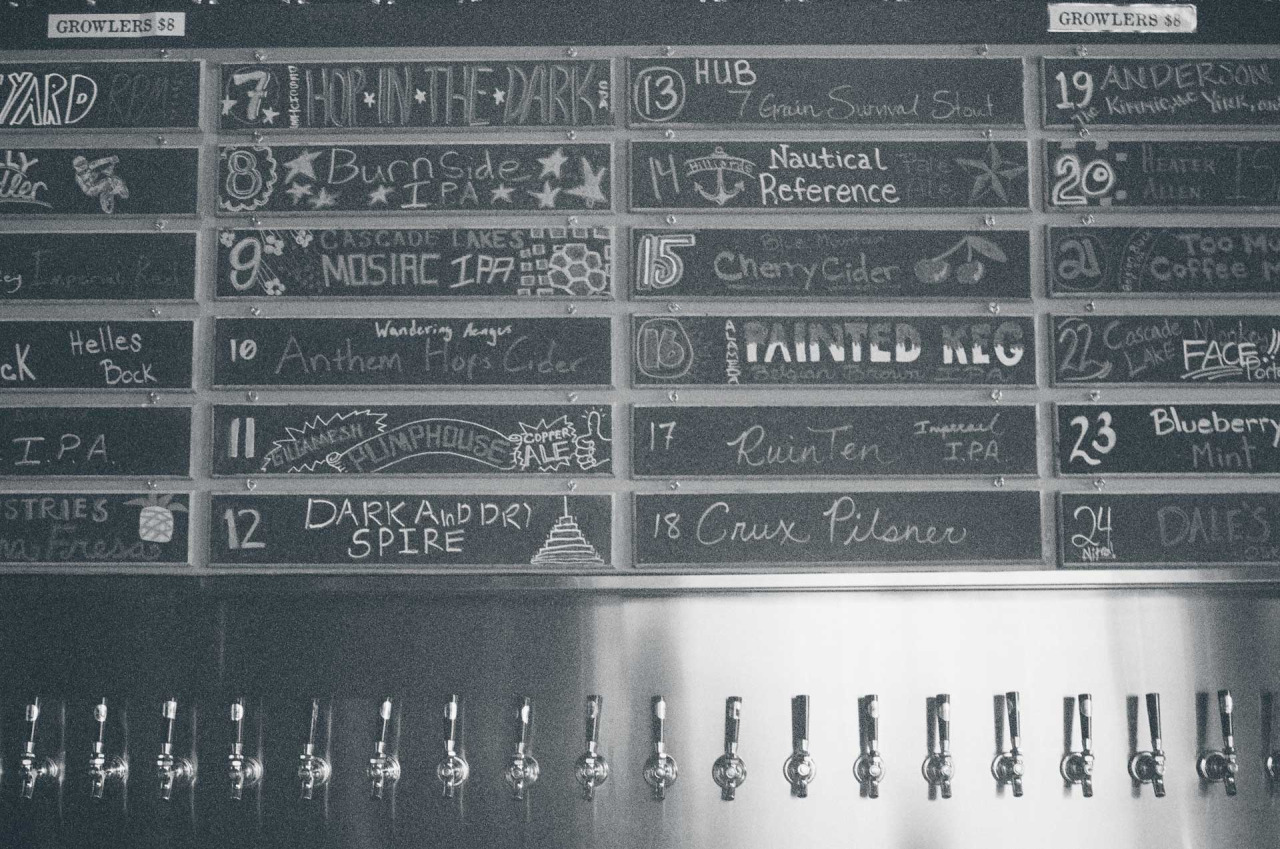 GROWLERS $8
GROWLERS $8
YARD RPM
I.P.A.
Helles
Bock
STRIES
Fresa
7 HOP IN THE DARK
8 BurnSide
IPA
9 CASCADE LAKES
MOSIAC IPA
10 Wandering Aengus
Anthem Hops Cider
11 GILGAMESH PUMPHOUSE COPPER
ALE
12 DARK AnD DRY
SPIRE
13 HUB
7 Grain Survival Stout
14 Nautical
Reference Pale
Ale
15 Blue Mountain
Cherry Cider
16 PAINTED KEG
Belgian Brown
17 RuinTen Imperial
I.P.A.
18 Crux Pilsner
19 ANDERSON
The
20 HEATER
ALLEN
21 TOO M
Coffee
22 Cascade
LAKE FACE
Porte
23 Blueberry
Mint
24 DALE'S
Nitro!